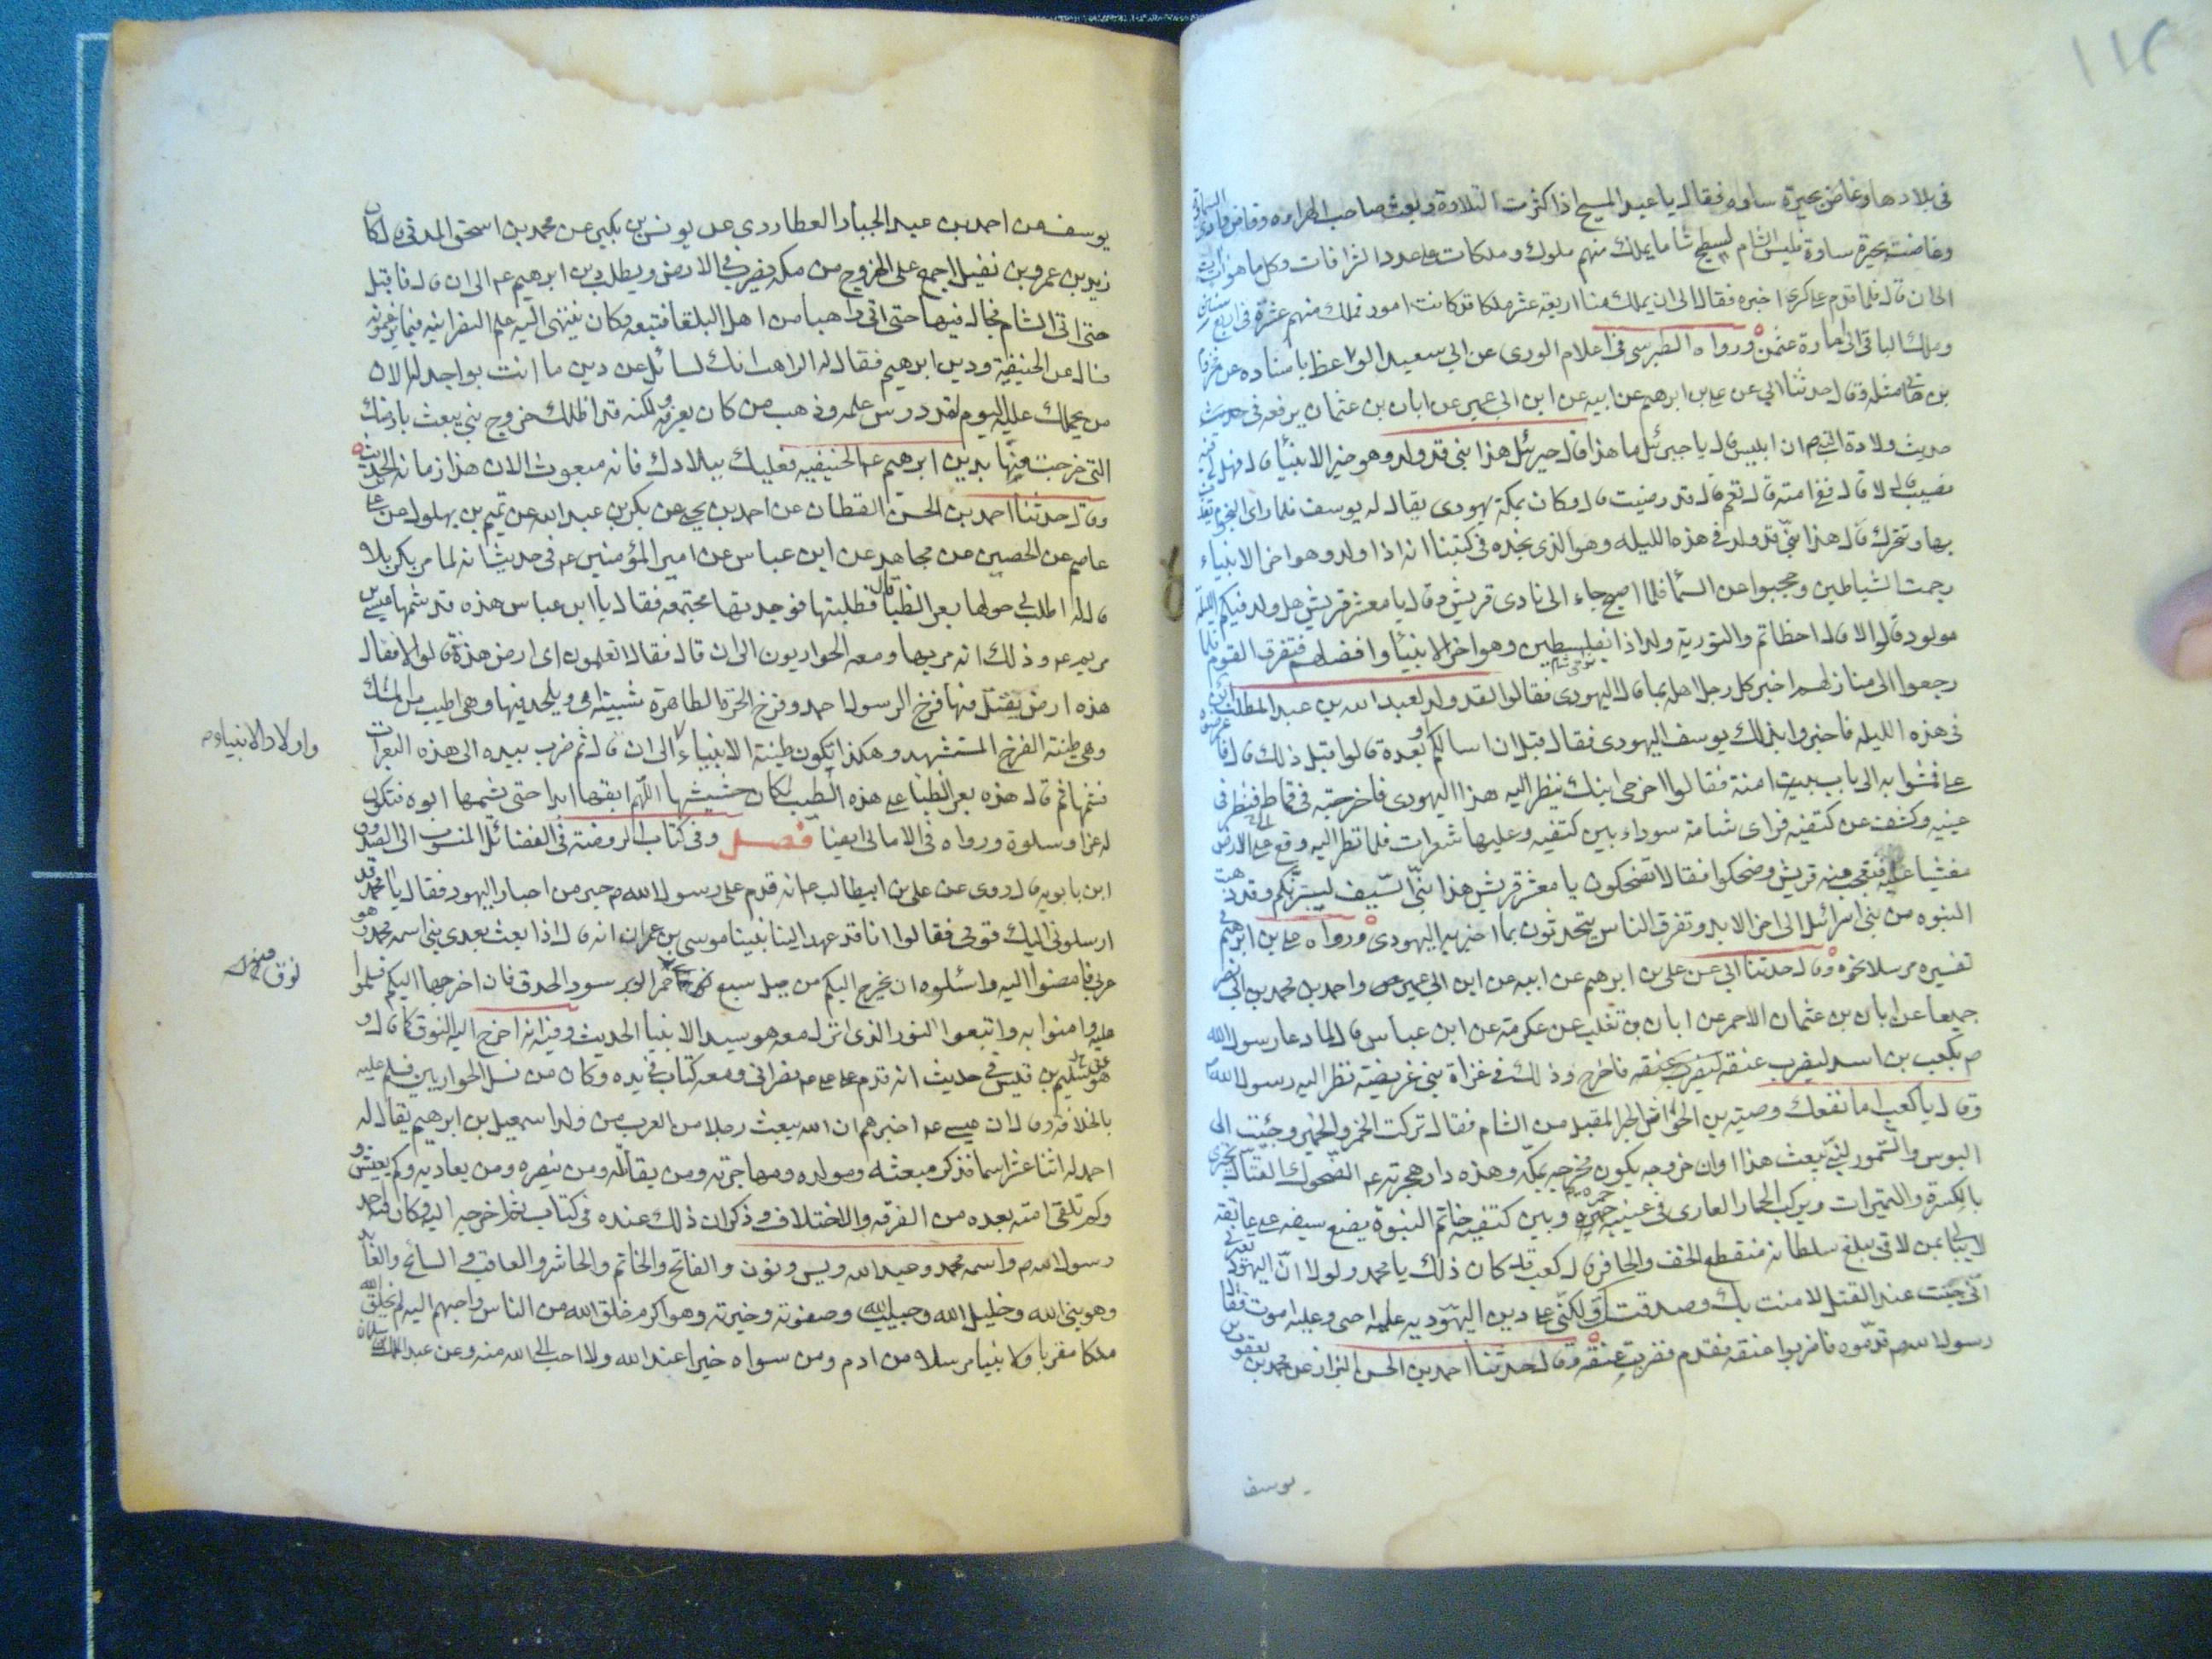 ١١٢
في بلادها وغاض بحيرة ساوه فقال يا عبد المسيح اذا كثرت التلاوة وبعث صاحب الهراوه وفاض وادي السماوة
وغاضت بحيرة ساوة فليس الشام لسطيح شاما يملك منهم ملوك وملكات على عدد الشرافات وكل ما هو آت آت
الى ان قال فلما قدم على كسرى اخبره فقال الى ان يملك منا اربعة عشر ملكا قد كانت امور فملك منهم عشرة في اربع سنين
وملك الباقي الى امارة عثمن ورواه الطبرسي في اعلام الورى عن ابي سعيد الواعظ باسناده عن مخزوم
بن هاني مثله وقال حدثنا ابي عن علي بن ابرهيم عن ابيه عن ابن ابي عمير عن ابان بن عثمان يرفعه في حديث
حديث ولادة النبي ص ان ابليس قال يا جبرئيل ما هذا قال جبرئيل هذا نبي قد ولد وهو خير الانبياء قال فهل لي فيه
نصيب قال لا قال ففي امته قال نعم قال قد رضيت قال وكان بمكة يهودي يقال له يوسف فلما راى النجوم تقذف
بها وتتحرك قال هذا نبي قد ولد في هذه الليله وهو الذي نجده في كتبنا انه اذا ولد وهو اخر الانبياء
رجمت الشياطين وحجبوا عن السما فلما اصبح جاء الى نادى قريش وقال يا معشر قريش هل ولد فيكم الليلة
مولود قالوا لا قال اخطاتم والتورية ولد اذا بفلسطين وهو اخر الانبياء وافضلهم فتفرق القوم فلما
رجعوا الى منازلهم اخبر كل رجل اهله بما قال اليهودي فقالوا لقد ولد لعبد الله بن عبد المطلب ابن
في هذه الليله فاخبروا بذلك يوسف اليهودي فقال قبل ان اسالكم او بعده قالوا قبل ذلك قال فاعرضوه
علي فمشوا به الى باب بيت امنة فقالوا اخرجي ابنك ينظر اليه هذا اليهودي فاخرجته في قماطه فنظر في
عينيه وكشف عن كتفيه فراى شامة سوداء بين كتفيه وعليها شعرات فلما نظر اليه وقع الى الارض
مغشيا عليه فتعجب منه قريش وضحكوا فقال اتضحكون يا معشر قريش هذا نبي السيف ليبترنكم وقد ذهبت
النبوه من بني اسرائيل الى اخر الابد وتفرق الناس يتحدثون بما اخبر به اليهودي ورواه علي بن ابرهيم في
تفسيره مرسلا نحوه وقال حدثنا ابي عن علي بن ابرهيم عن ابيه عن ابن ابي عمير واحمد بن محمد بن ابي نصر
جميعا عن ابان بن عثمان الاحمر عن ابان بن تغلب عن عكرمة عن ابن عباس قال لما دعا رسول الله
ص بكعب بن اسد ليضرب عنقه فاخرج وذلك في غزاة بني قريضة نظر اليه رسول الله ص
وقال يا كعب اما نفعك وصية بن الحواش الحبر المقبل من الشام فقال تركت الخمر والخمير وجئت الى
البوس والتمور لنبي يبعث هذا اوان خروجه يكون مخرجه بمكة وهذه دار هجرته عم الضحوك القتال يجتزى
بالكسرة والتميرات ويركب الحمار العاري في عينيه حمرة وبين كتفيه خاتم النبوة يضع سيفه على عاتقه
لا يبالي بمن لاقى يبلغ سلطانه منقطع الخف والحافر قال كعب قد كان ذلك يا محمد ولولا ان اليهود تعيرني
اني جبنت عند القتل لامنت بك وصدقتك لكني على دين اليهوديه عليه احيى وعليه اموت فقال
رسول الله ص قدموه فاضربوا عنقه فقدم فضربت عنقه وقال حدثنا احمد بن الحسن البزاز عن محمد بن يعقوب بن
يوسف
يوسف عن احمد بن عبد الجبار العطاردي عن يونس بن بكير عن محمد بن اسحق المدني قال كان
زيد بن عمرو بن نفيل اجمع على الخروج من مكه يضرب في الارض ويطلب دين ابرهيم عم الى ان قال فاقبل
حتى اتى الشام فجال فيها حتى اتى راهبا من اهل البلقا فتبعه وكان ينتهي اليه علم النصرانيه فيما يزعمون
فساله عن الحنيفية ودين ابرهيم فقال له الراهب انك لسائل عن دين ما انت بواجد له الان
من يحملك عليه اليوم لقد درس علمه وذهب من كان يعرفه ولكنه قد اظلك خروج نبي يبعث بارضك
التي خرجت منها بدين ابرهيم عم الحنيفيه فعليك ببلادك فانه مبعوث الان هذا زمانه الحديث
وقال حدثنا احمد بن الحسن القطان عن احمد بن يحيى عن بكر بن عبد الله عن تميم بن بهلول عن علي
عاصم عن الحصين عن مجاهد عن ابن عباس عن امير المؤمنين عم في حديث انه لما مر بكربلا
قال له اطلب لي حولها بعر الظبا قال فطلبتها فوجدتها مجتمعه فقال يا ابن عباس هذه قد شمها عيسى بن
مريم عم وذلك انه مر بها ومعه الحواريون الى ان قال فقال اتعلمون اى ارض هذه قالوا لا فقال
هذه ارض يقتل فيها فرخ الرسول احمد وفرخ الحرة الطاهرة شبيهة امي ويلحد فيها وهي اطيب من المسك
وهي طينة الفرخ المستشهد وهكذا يكون طينة الانبياء الى ان قال ثم ضرب بيده الى هذه البعرات
واولاد الانبياء ص
فشمها ثم قال هذه بعر الظبا على هذه الطيب لمكان حشيشها اللهم ابقها ابدا حتى يشمها ابوه فتكون
له عزا وسلوة ورواه في الامالي ايضا فصل وفي كتاب الروضة في الفضائل المنسوب الى الصدوق
ابن بابويه قال روى عن علي بن ابيطالب عم انه قدم على رسول الله ص حبر من احبار اليهود فقال يا محمد قد
ارسلوني اليك قومي فقالوا انا قد عهد الينا نبينا موسى بن عمران انه قال اذا بعث بعدي نبي اسمه محمد وهو
عربي فامضوا اليه واسئلوه ان يخرج اليكم من جبل سبع حمر الوبر سود الحدق فان اخرجها اليكم فسلموا
نوق
عليه وامنوا به واتبعوا النور الذي انزل معه هو سيد الانبيا الحديث وفيه انه اخرج اليه النوق كما قال و
عن سليم بن قيس في حديث انه قدم على علي عم نصراني ومعه كتاب في يده وكان من نسل الحواريين فسلم عليه
بالخلافه وقال ان عيسى عم اخبرهم ان الله يبعث رجلا من العرب من ولد اسمعيل بن ابرهيم يقال له
احمد له اثنا عشر اسما فذكر مبعثه ومولده ومهاجرته ومن يقاتله ومن ينصره ومن يعاديه وكم يعيش و
وكم تلقى امته بعده من الفرقه والاختلاف وذكر ان ذلك عنده في كتاب ثم اخرجه اليه وكان فيه احمد
رسول الله ص واسمه محمد وعبد الله ويس ونون والفاتح والخاتم والحاشر والعاقب والسائح والقائد
وهو نبي الله وخليل الله وحبيب الله وصفوته وخيرته وهو اكرم خلق الله من الناس واحبهم اليه لم يخلق الله
ملكا مقربا ولا نبيا مرسلا من ادم ومن سواه خيرا عند الله ولا احب الى الله منه وعن عبد الملك بن سليمان